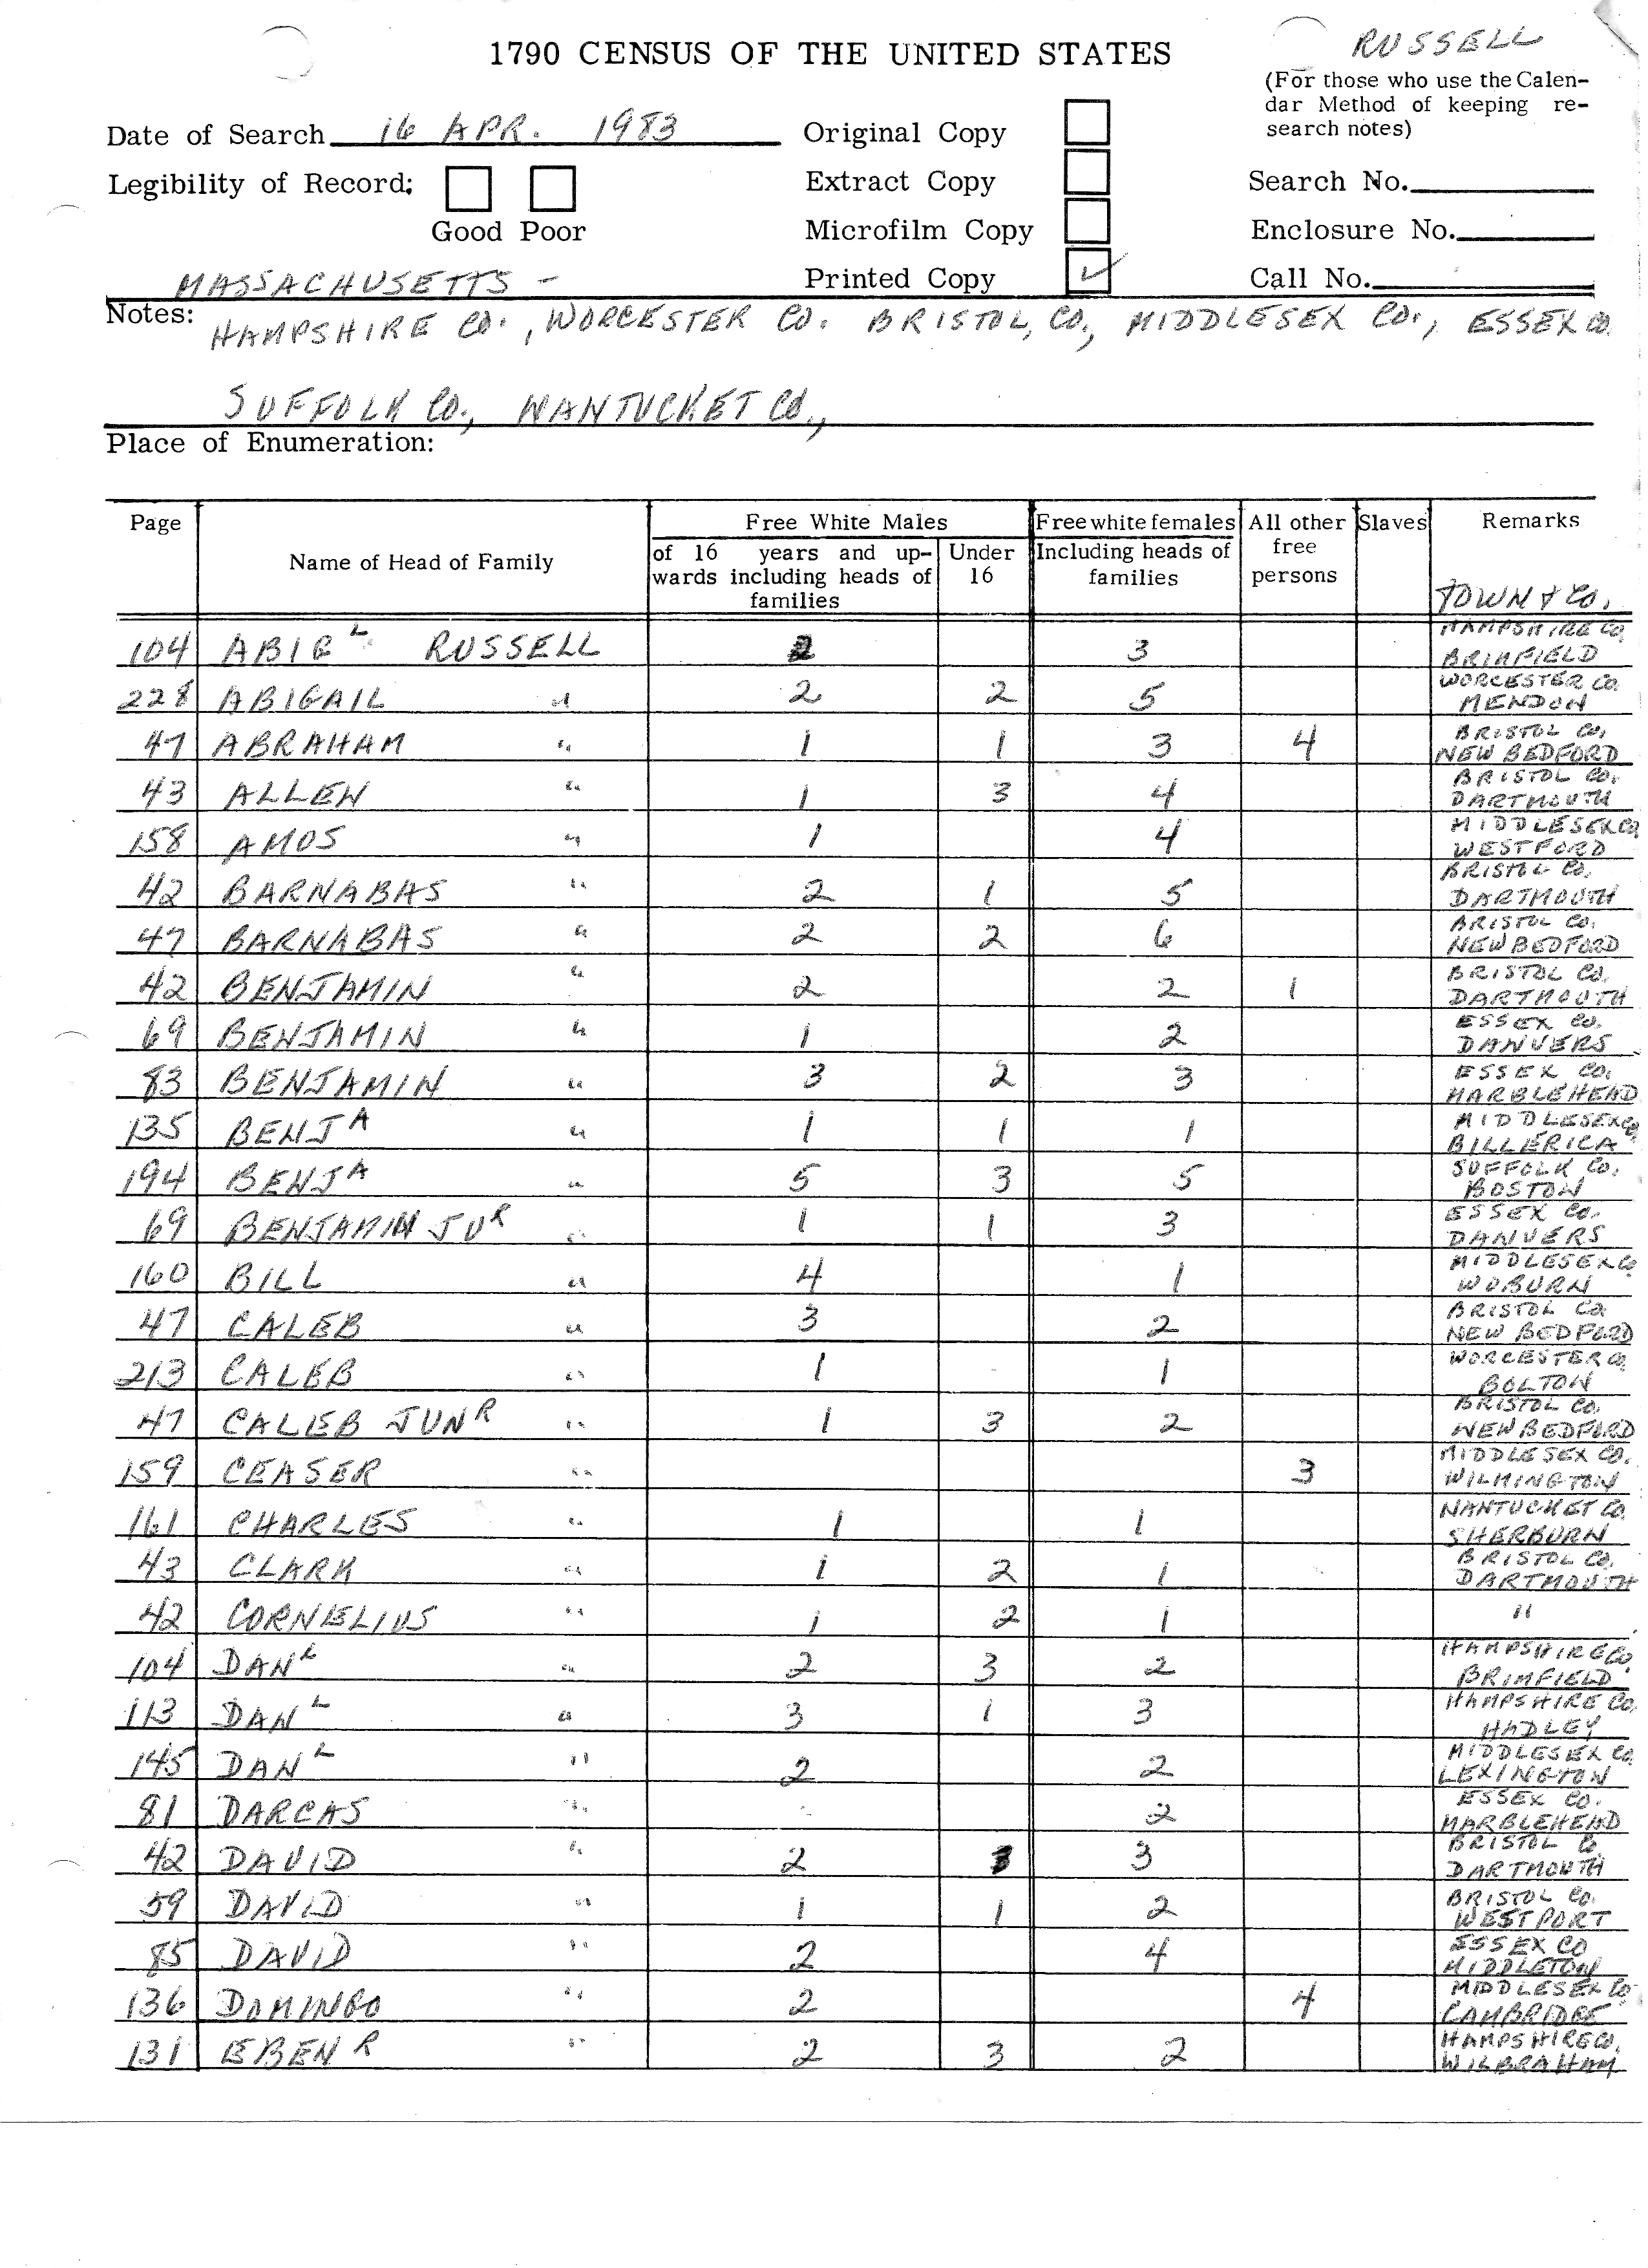 RUSSELL
1790 CENSUS OF THE UNITED STATES
(For those who use the Calen-
dar Method of keeping re-
search notes)
Date of Search 16 APR. 1983
Original Copy
Legibility of Record;
Extract Copy
Search No.
Good Poor
Microfilm Copy
Enclosure No.
MASSACHUSETTS -
Printed Copy ✓
Call No.
Notes: HAMPSHIRE CO., WORCESTER CO. BRISTOL, CO., MIDDLESEX CO., ESSEX CO.
SUFFOLK CO., NANTUCKET CO.,
Place of Enumeration:
Page
Name of Head of Family
Free White Males
of 16 years and up-
wards including heads of
families
Under
16
Free white females
Including heads of
families
All other
free
persons
Slaves
Remarks
TOWN & CO.
104 ABIG L RUSSELL 2 3 HAMPSHIRE CO. BRIMFIELD
228 ABIGAIL " 2 2 5 WORCESTER CO. MENDON
47 ABRAHAM " 1 1 3 4 BRISTOL CO, NEW BEDFORD
43 ALLEN " 1 3 4 BRISTOL CO. DARTMOUTH
158 AMOS " 1 4 MIDDLESEX CO WESTFORD
42 BARNABAS " 2 1 5 BRISTOL CO. DARTMOUTH
47 BARNABAS " 2 2 6 BRISTOL CO. NEW BEDFORD
42 BENJAMIN " 2 2 1 BRISTOL CO. DARTMOUTH
69 BENJAMIN " 1 2 ESSEX CO. DANVERS
83 BENJAMIN " 3 2 3 ESSEX CO. MARBLEHEAD
135 BENJ A " 1 1 1 MIDDLESEX CO BILLERICA
194 BENJ A " 5 3 5 SUFFOLK CO. BOSTON
69 BENJAMIN JU R " 1 1 3 ESSEX CO. DANVERS
160 BILL " 4 1 MIDDLESEX CO WOBURN
47 CALEB " 3 2 BRISTOL CO. NEW BEDFORD
213 CALEB " 1 1 WORCESTER CO. BOLTON
47 CALEB JUN R " 1 3 2 BRISTOL CO. NEW BEDFORD
159 CEASER " 3 MIDDLESEX CO. WILMINGTON
161 CHARLES " 1 1 NANTUCKET CO. SHERBURN
43 CLARK " 1 2 1 BRISTOL CO. DARTMOUTH
42 CORNELIUS " 1 2 1 "
104 DAN L " 2 3 2 HAMPSHIRE CO BRIMFIELD
113 DAN L " 3 1 3 HAMPSHIRE CO. HADLEY
145 DAN L " 2 2 MIDDLESEX CO. LEXINGTON
81 DARCAS " 2 ESSEX CO. MARBLEHEAD
42 DAVID " 2 3 3 BRISTOL CO DARTMOUTH
59 DAVID " 1 1 2 BRISTOL CO. WESTPORT
85 DAVID " 2 4 ESSEX CO MIDDLETON
136 DOMINGO " 2 4 MIDDLESEX CO CAMBRIDGE
131 EBEN R " 2 3 2 HAMPSHIRE CO. WILBRAHAM